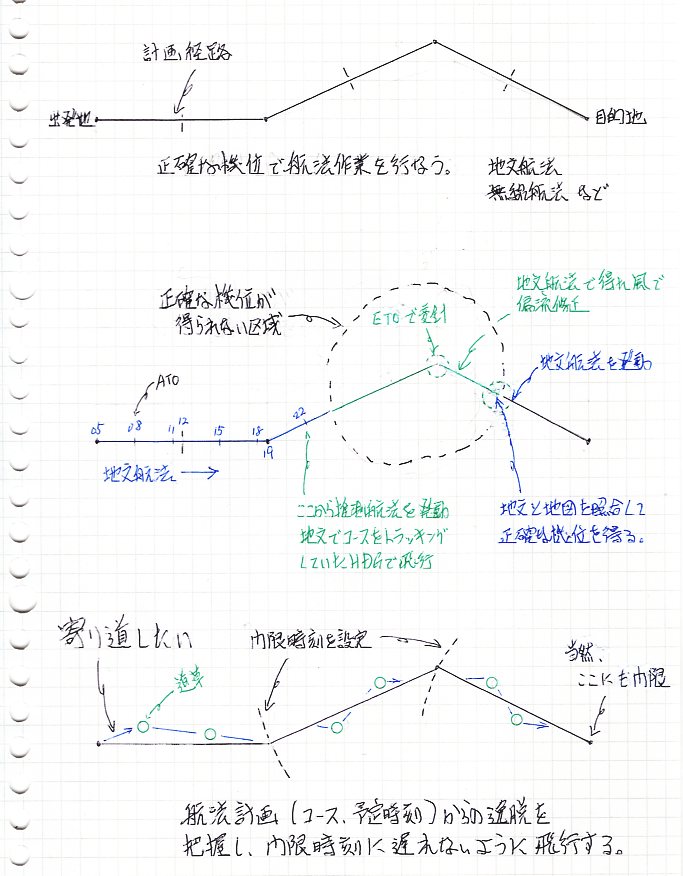 計画経路
出発地
目的地
正確な機位で航法作業を行なう。
地文航法
無線航法 など
正確な機位が
得られない区域
ETOで変針
地文航法で得た風で
偏流修正
地文航法を発動
ATO
05
08
11
12
15
18
19
22
地文航法 →
ここから推測航法を発動
地文でコースをトラッキング
していたHDGで飛行
地文と地図を照合して
正確な機位を得る。
寄り道したい
内限時刻を設定
当然、
ここにも内限
航法計画(コース、予定時刻)からの逸脱を
把握し、内限時刻に遅れないように飛行する。